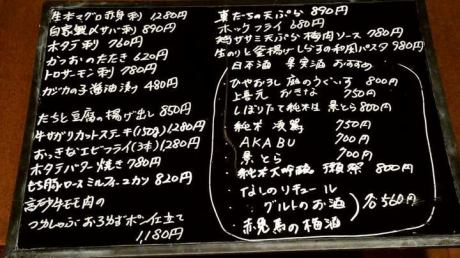 生本マグロ赤身刺 1280円
自家製〆サバ刺 890円
ホタテ刺 760円
かつおのたたき 620円
トロサーモン刺 780円
ガッカの子醤油漬 480円
たちと豆腐の揚げ出し 850円
牛サガリカットステーキ(150g) 1280円
おっきなエビフライ(3本) 1280円
ホタテバター焼き 780円
もち豚ロースミルフィーユカツ 820円
高砂牛モモ肉の
つかしゃぶ おろしポン仕立て
1,180円
真たちの天ぷら 890円
ホッケフライ 680円
鶏ササミ天ぷら 梅肉ソース 780円
生のりと釜揚げしらすの和風パスタ 980円
日本酒 果実酒 おすすめ
ひやおろし 庭のうぐいす 800円
上喜元 おきな 750円
しぼりたて純米 景とら 800円
純米 浅霧 750円
AKABU 700円
景とら 700円
純米大吟醸 獺祭 800円
なしのリキュール
グルトのお酒
各560円
赤兎馬の梅酒